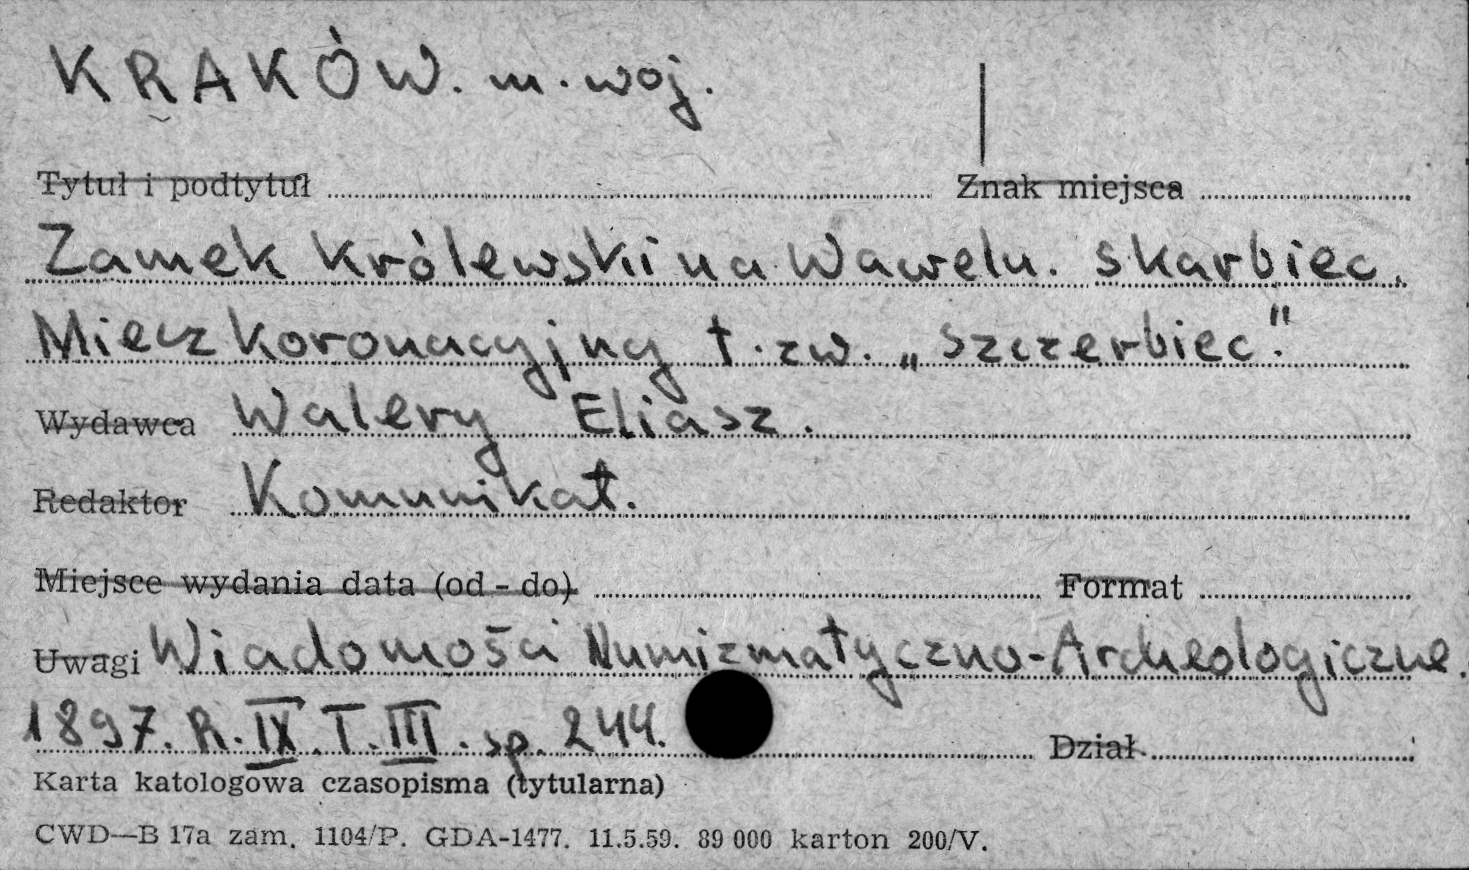 KRAKÓW. m. woj.
Tytuł i podtytuł Znak miejsca
Zamek Królewski na Wawelu. skarbiec.
Miecz koronacyjny t. zw. „szczerbiec".
Wydawca Walery Eliasz.
Redaktor Komunikat.
Miejsce wydania data (od - do) Format
Uwagi Wiadomości Numizmatyczno-Archeologiczne.
1897. R. IX. T. III. sp. 244.
Dział
Karta katologowa czasopisma (tytularna)
CWD—B 17a zam. 1104/P. GDA-1477. 11.5.59. 89 000 karton 200/V.